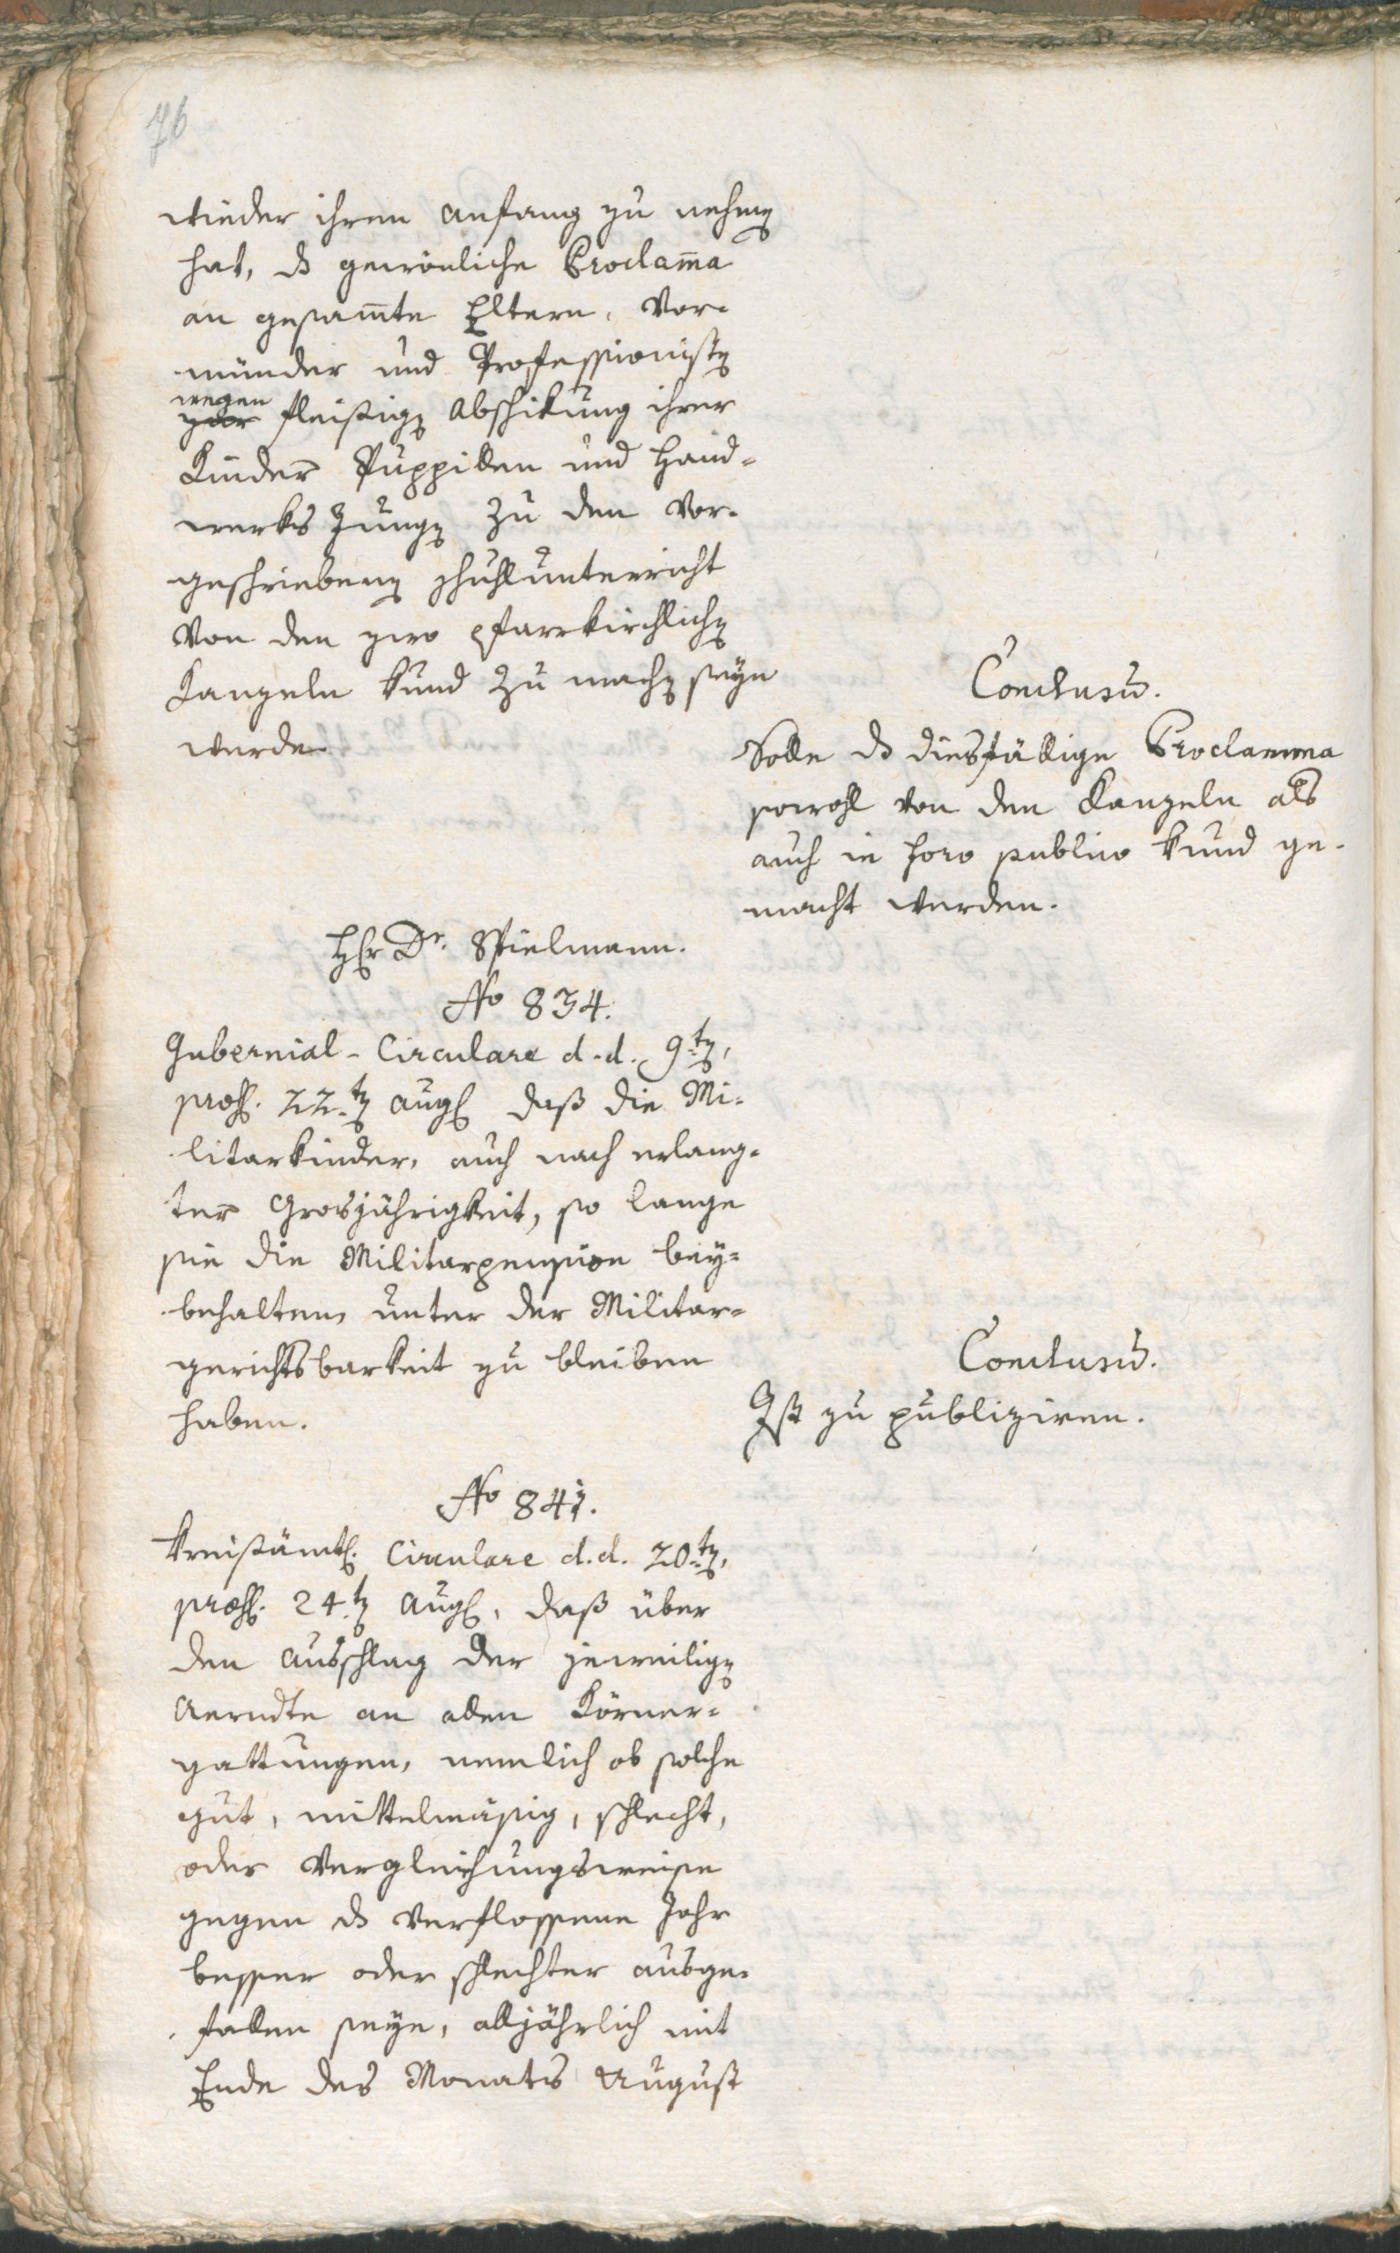 76
wieder ihren Anfang zu nehmen
hat, ds gewönliche Proclama
an gesamte Eltern, Vor-
münder und Professionisten
wegen fleißiger Abschikung ihrer
Kinder Puppillen und Hand-
werks Jungen zu dem vor-
geschriebenen Schuhlunterricht
von den zwo pfarrkirchlichen
Kanzeln kund zu machen seyn
werde.
Conclusum.
Solle ds diesfällige Proclamma
sowohl von den Kanzeln als
auch in foro publico kund ge-
macht werden.
Hr Dr. Spielmann.
No 834.
Gubernial-Circulare d.d. 9ten,
præs. 22ten Aug. daß die Mi-
litarkinder, auch nach erlang-
ter Grosjährigkeit, so lange
sie die Militarpension bey-
behalten, unter der Militar-
gerichtsbarkeit zu bleiben
haben.
Conclusum.
Ist zu publiziren.
No 841.
Kreisämtl. Circulare d.d. 20ten,
præs. 24ten Aug., daß über
den Ausschlag der jeweiligen
Aerndte an allen Körner-
gattungen, nemlich ob solche
gut, mittelmäsig, schlecht,
oder Vergleichungsweise
gegen ds verflossene Jahr
besser oder schlechter ausge-
fallen seye, alljährlich mit
Ende des Monats August